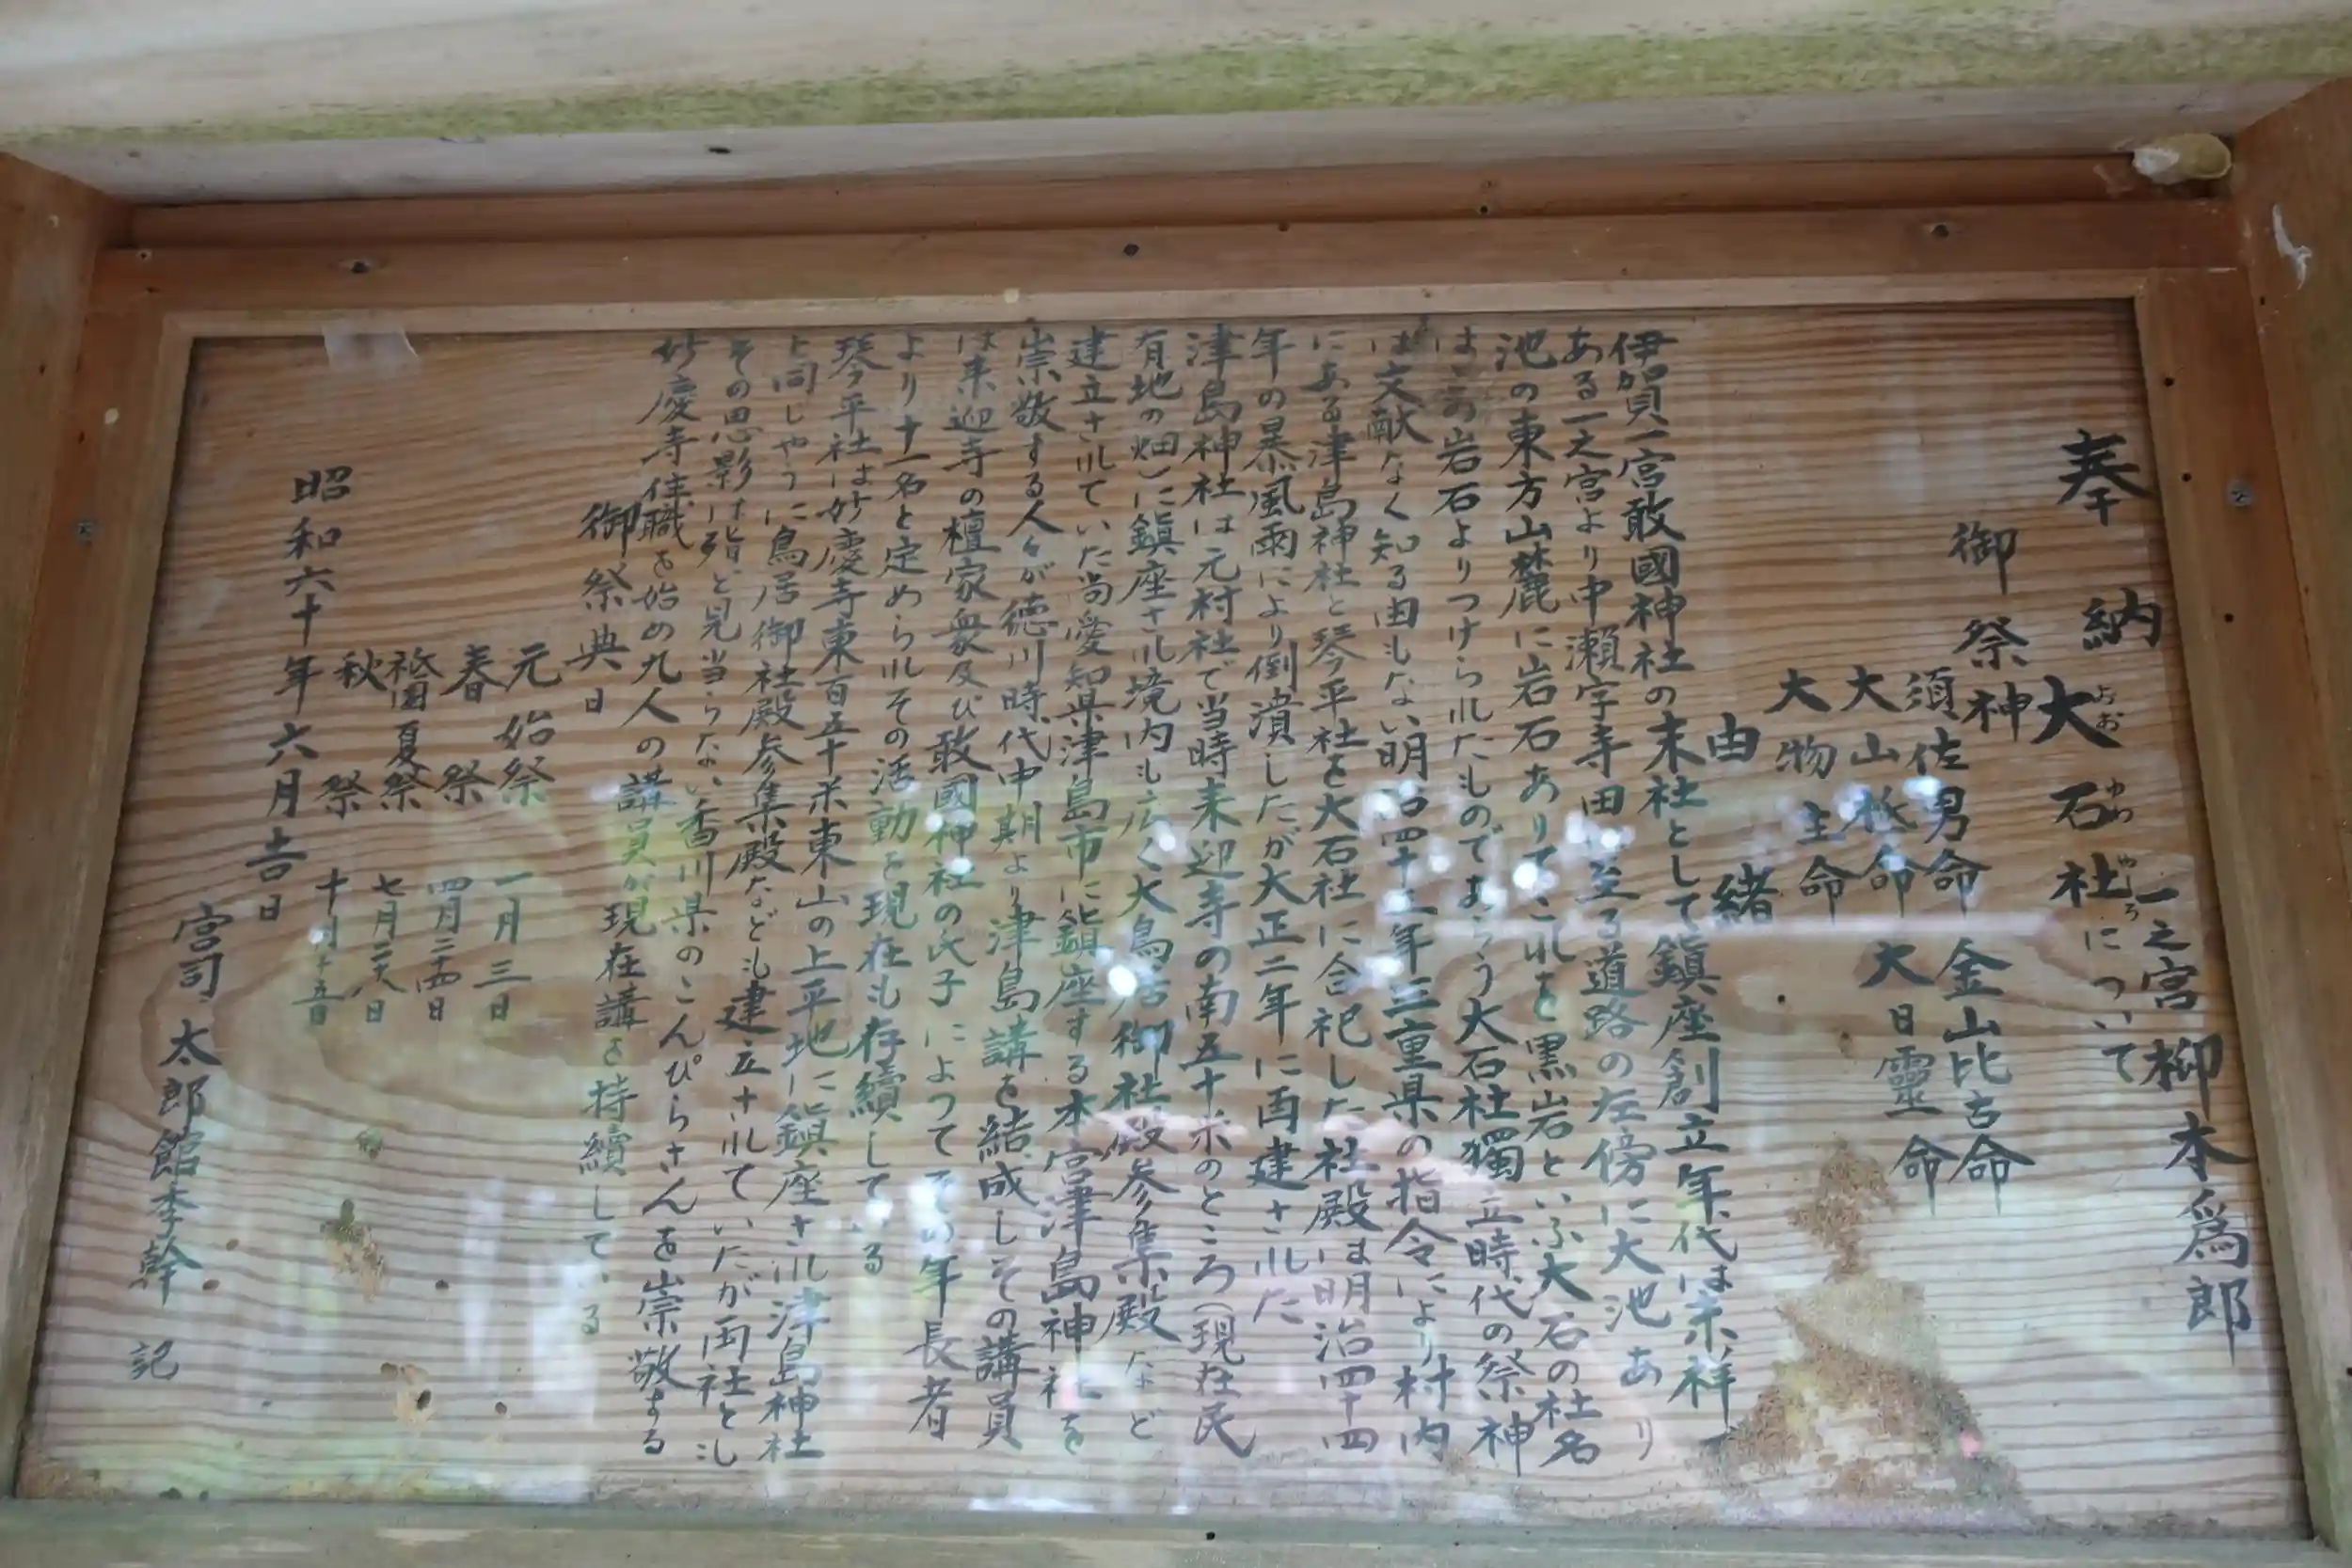 奉納 一之宮 柳本為郎
大石社について
おお いわ やしろ
御祭神
須佐男命 金山比古命
大山祇命 大日靈命
大物主命
由緒
伊賀一宮敢國神社の末社として鎮座創立年代は未祥
ある一之宮より中瀬字寺田 至る道路の左傍に大池あり
池の東方山麓に岩石ありてこれを黒岩といふ大石の社名
はこの岩石よりつけられたものであらう大石社獨立時代の祭神
は文献なく知る由もない明治四十二年三重県の指令により村内
にある津島神社と琴平社を大石社に合祀した社殿は明治四十四
年の暴風雨により倒潰したが大正二年に再建された
津島神社は元村社で当時来迎寺の南五十米のところ(現在民
有地の畑)に鎮座され境内も広く大鳥居御社殿参集殿など
建立されていた尚愛知県津島市に鎮座する本宮津島神社を
崇敬する人々が徳川時代中期より津島講を結成しその講員
は来迎寺の檀家衆及び敢國神社の氏子によってその年長者
より十一名と定められその活動を現在も存續している
琴平社は妙慶寺東百五十米東山の上平地に鎮座され津島神社
と同じやうに鳥居御社殿参集殿なども建立されていたが両社とも
その思影は殆ど見当らない香川県のこんぴらさんを崇敬する
妙慶寺住職を始め九人の講員が現在講を持續している
御祭典日
元始祭 一月三日
春祭 四月二十四日
祇園夏祭 七月二十八日
秋祭 十月十五日
昭和六十年六月吉日
宮司 太郎館季幹 記